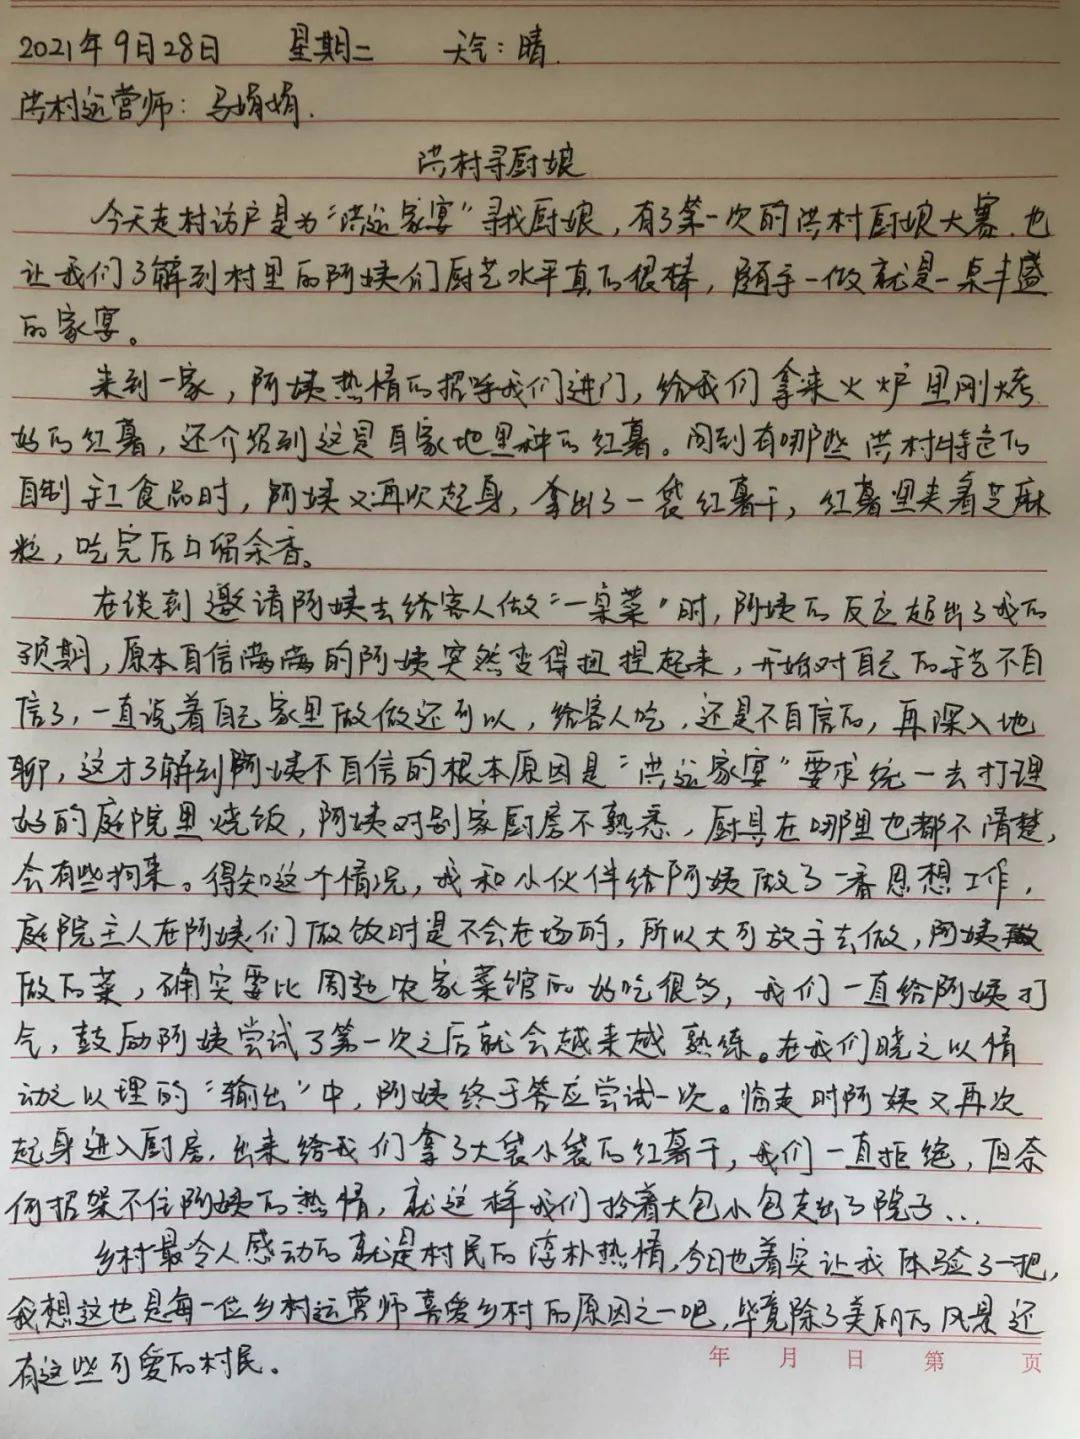 2021年9月28日 星期二 天气：晴.
洪村运营师：马娟娟.
洪村寻厨娘
今天走村访户是为“洪运家宴”寻找厨娘，有了第一次的洪村厨娘大赛，也
让我们了解到村里的阿姨们厨艺水平真的很棒，随手一做就是一桌丰盛
的家宴。
来到一家，阿姨热情的招呼我们进门，给我们拿来火炉里刚烤
好的红薯，还介绍到这是自家地里种的红薯。问到有哪些洪村特色的
自制手工食品时，阿姨又再次起身，拿出了一袋红薯干，红薯里夹着芝麻
粒，吃完后口留余香。
在谈到邀请阿姨去给客人做“一桌菜”时，阿姨的反应超出了我的
预期，原本自信满满的阿姨突然变得扭捏起来，开始对自己的手艺不自
信了，一直说着自己家里做做还可以，给客人吃，还是不自信的，再深入地
聊，这才了解到阿姨不自信的根本原因是“洪运家宴”要求统一去打理
好的庭院里烧饭，阿姨对别家厨房不熟悉，厨具在哪里也都不清楚，
会有些拘束。得知这个情况，我和小伙伴给阿姨做了一番思想工作，
庭院主人在阿姨们做饭时是不会在场的，所以大可放手去做，阿姨
做的菜，确实要比周边农家菜馆的好吃很多，我们一直给阿姨打
气，鼓励阿姨尝试了第一次之后就会越来越熟练。在我们晓之以情
动之以理的“输出”中，阿姨终于答应尝试一次。临走时阿姨又再次
起身进入厨房，出来给我们拿了大袋小袋的红薯干，我们一直拒绝，但奈
何招架不住阿姨的热情，就这样我们拎着大包小包走出了院子...
乡村最令人感动的就是村民的淳朴热情，今日也着实让我体验了一把，
我想这也是每一位乡村运营师喜爱乡村的原因之一吧，毕竟除了美丽的风景还
有这些可爱的村民。
年 月 日 第 页